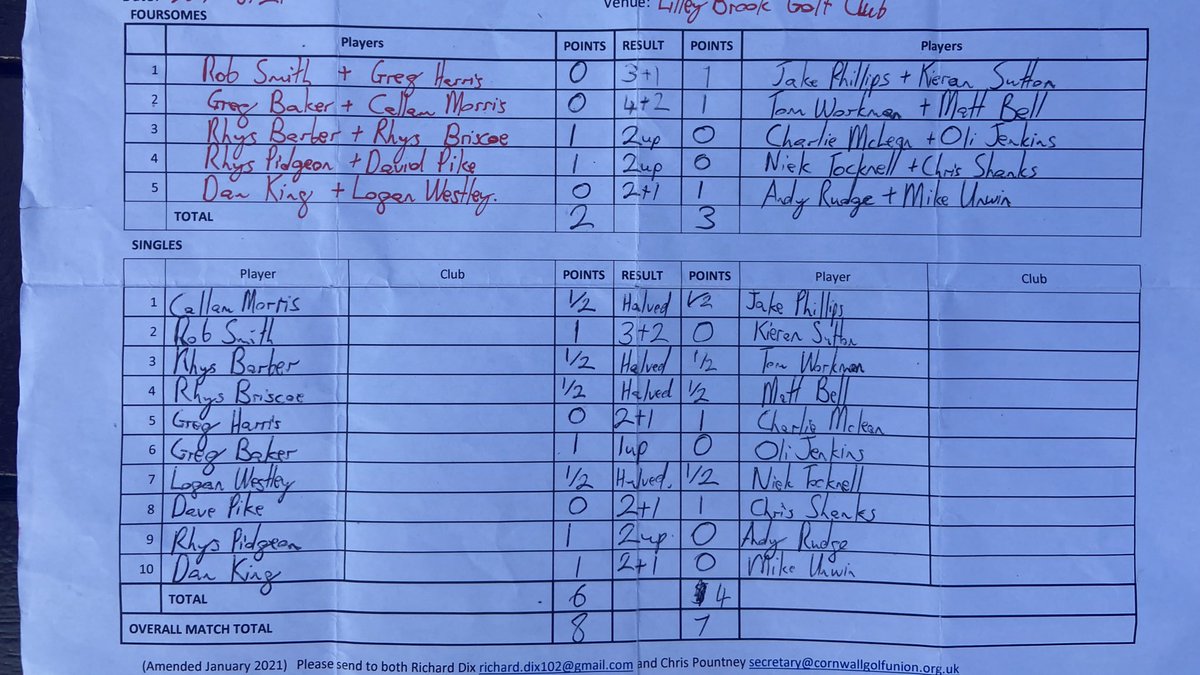 Venue: Lilley Brook Golf Club
FOURSOMES
Players POINTS RESULT POINTS Players
1 Rob Smith + Greg Harris 0 3+1 1 Jake Phillips + Kieran Sutton
2 Greg Baker + Callan Morris 0 4+2 1 Tom Workman + Matt Bell
3 Rhys Barber + Rhys Briscoe 1 2up 0 Charlie McLean + Oli Jenkins
4 Rhys Pidgeon + David Pike 1 2up 0 Nick Tocknell + Chris Shanks
5 Dan King + Logan Westley. 0 2+1 1 Andy Rudge + Mike Unwin
TOTAL 2 3
SINGLES
Player Club POINTS RESULT POINTS Player Club
1 Callan Morris 1/2 Halved 1/2 Jake Phillips
2 Rob Smith 1 3+2 0 Kieran Sutton
3 Rhys Barber 1/2 Halved 1/2 Tom Workman
4 Rhys Briscoe 1/2 Halved 1/2 Matt Bell
5 Greg Harris 0 2+1 1 Charlie Mclean
6 Greg Baker 1 1up 0 Oli Jenkins
7 Logan Westley 1/2 Halved. 1/2 Nick Tocknell
8 Dave Pike 0 2+1 1 Chris Shanks
9 Rhys Pidgeon 1 2up. 0 Andy Rudge
10 Dan King 1 2+1 0 Mike Unwin
TOTAL 6 4
OVERALL MATCH TOTAL 8 7
(Amended January 2021) Please send to both Richard Dix richard.dix102@gmail.com and Chris Pountney secretary@cornwallgolfunion.org.uk